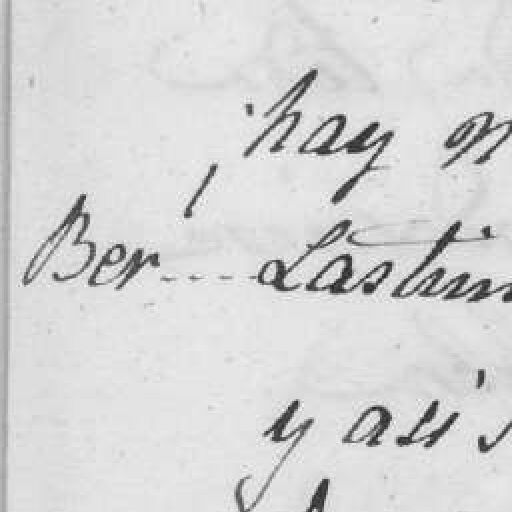 ¡hay
Ber.... Lastim
y asi